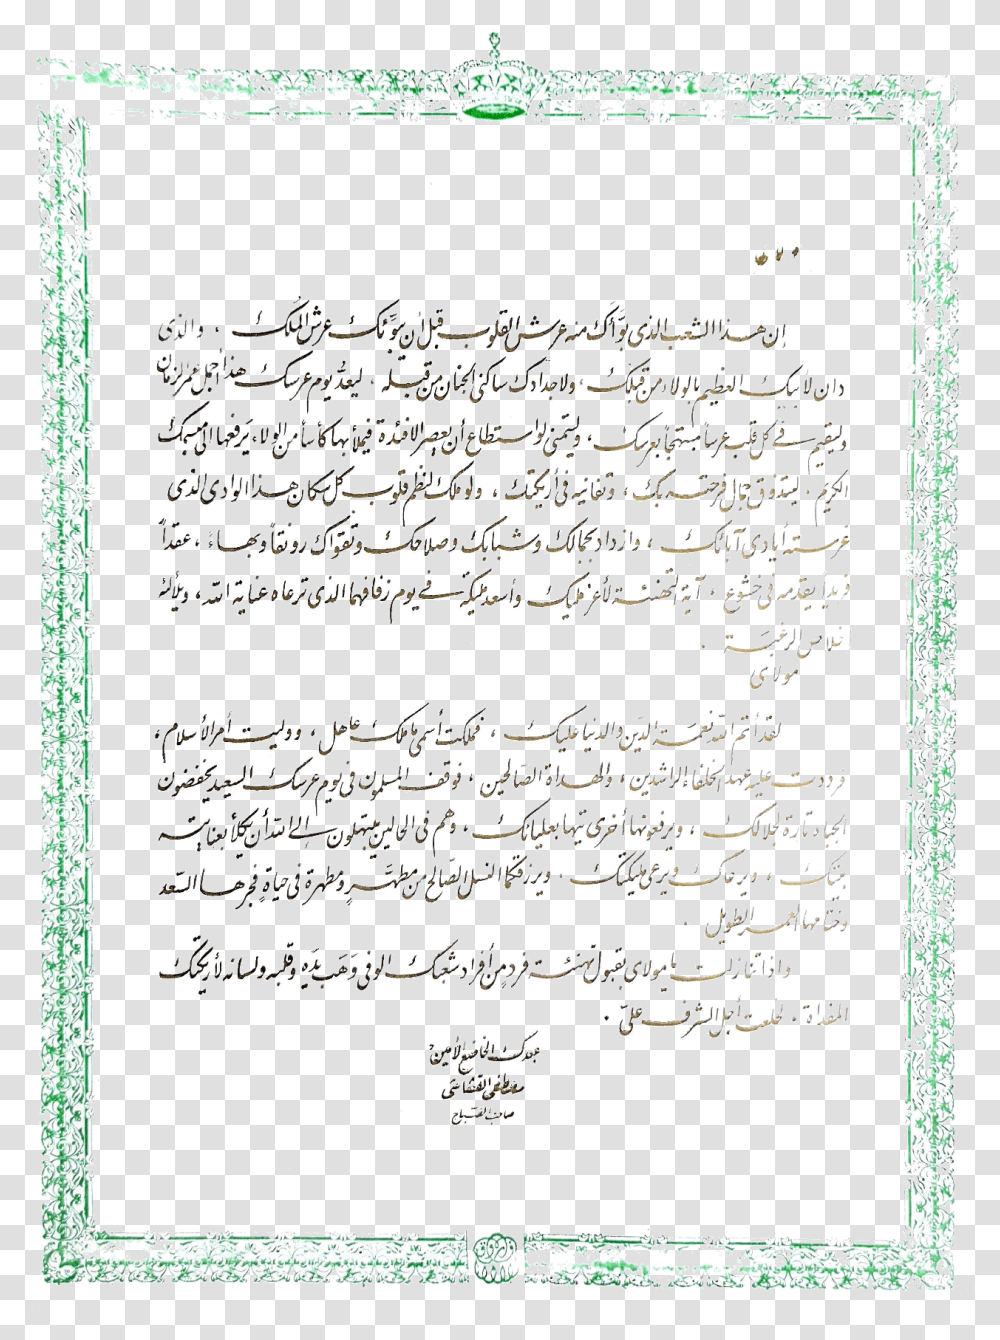 إن هذا الشعب الذى بوّأك منه عرش القلوب قبل أن يبوّئك عرش الملك ، والذى
دان لأبيك العظيم بالولاء من قبلك ، ولأجدادك ساكنى الجنان من قبله ، ليعدّ يوم عرسك هذا أجمل عمر الزمان
ويقيم فى كل قلب عرساً مبتهجاً بعرسك ، وليتمنى لو استطاع أن يعصر الافئدة فيملأ بها كأساً من الولاء يرفعها الى
الكريم . ليتذوق جمال فرحته بك ، وتفانيه فى أريكتك ، ولو ملك لنظم قلوب كل سكان هذا الوادى الذى
غرسته أيادى آبائك ، وازداد بجمالك وشبابك وصلاحك وتقواك رونقاً وبهاءً ، عقداً
فريداً يقدمه فى خشوع . آية التهنئة لأعز مليك وأسعد مليكة فى يوم زفافهما الذى ترعاه عناية الله ،
الرغبة .
مولاى
لقد أتم الله نعمة الدين والدنيا عليك ، فملكت أسمى ما ملك عاهل ، ووليت أمر الأسلام ،
ورددت عليه عهد الخلفاء الراشدين ، والهداة الصالحين ، فوقف المسلمون فى يوم عرسك السعيد يخفضون
الجباه تارة لجلالك ، ويرفعونها أخرى تيها بعليائك ، وهم فى الحالين يبتهلون إلى الله أن يكلأ بعنايته
بيتك ، ويرعاك ويرعى مليكتك . ويرزقكما النسل الصّالح من مطهَّرٍ ومطهرة فى حياةٍ فجرها السّعد
وختامها العمر الطويل .
واذا تنازلت يا مولاى بقبول تهنئة فردٍ من أفراد شعبك الوفى وَهَب يدَه وقلبه ولسانه لأريكتك
المفداة . لخلعت أجل الشرف علىّ .
عبدك الخاضع الأمين
مصطفى القشاشى
صاحب الصباح